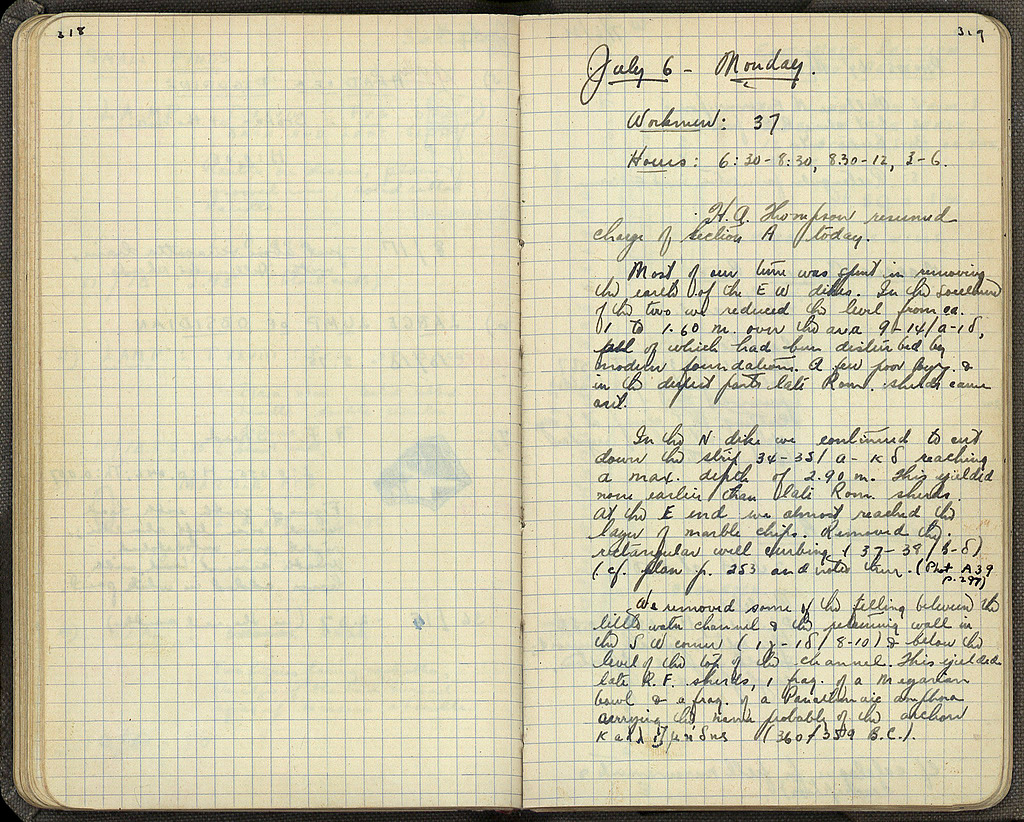 318
319
July 6 - Monday.
Workmen: 37
Hours: 6:30-8:30, 8.30-12, 3-6.
H.A. Thompson resumed
charge of Section A today.
Most of our time was spent in removing
the earth of the E W dikes. In the Southern
of the two we reduced the level from ca.
1 to 1.60 m. over the area 9-14/α-ιδ,
all of which had been disturbed by
modern foundations. A few poor Byz. &
in the deepest parts late Rom. sherds came
out.
In the N dike we continued to cut
down the strip 34-35/α-κδ reaching
a max. depth of 2.90 m. This yielded
none earlier than late Rom. sherds.
At the E end we almost reached the
layer of marble chips. Removed the
rectangular well curbing ( 37-39/ -δ)
(cf. plan p. 253 and notes there. (Phot A 39
p. 297)
We removed some of the filling between the
little water channel & the retaining wall in
the S W corner ( -ιδ/8-10) & below the
level of the top of the channel. This yielded
late R.F. sherds, 1 frag. of a Megarian
bowl & a frag. of a Panathenaic amphora
carrying the name probably of the archon
Καλλιμήδης (360/359 B.C.).